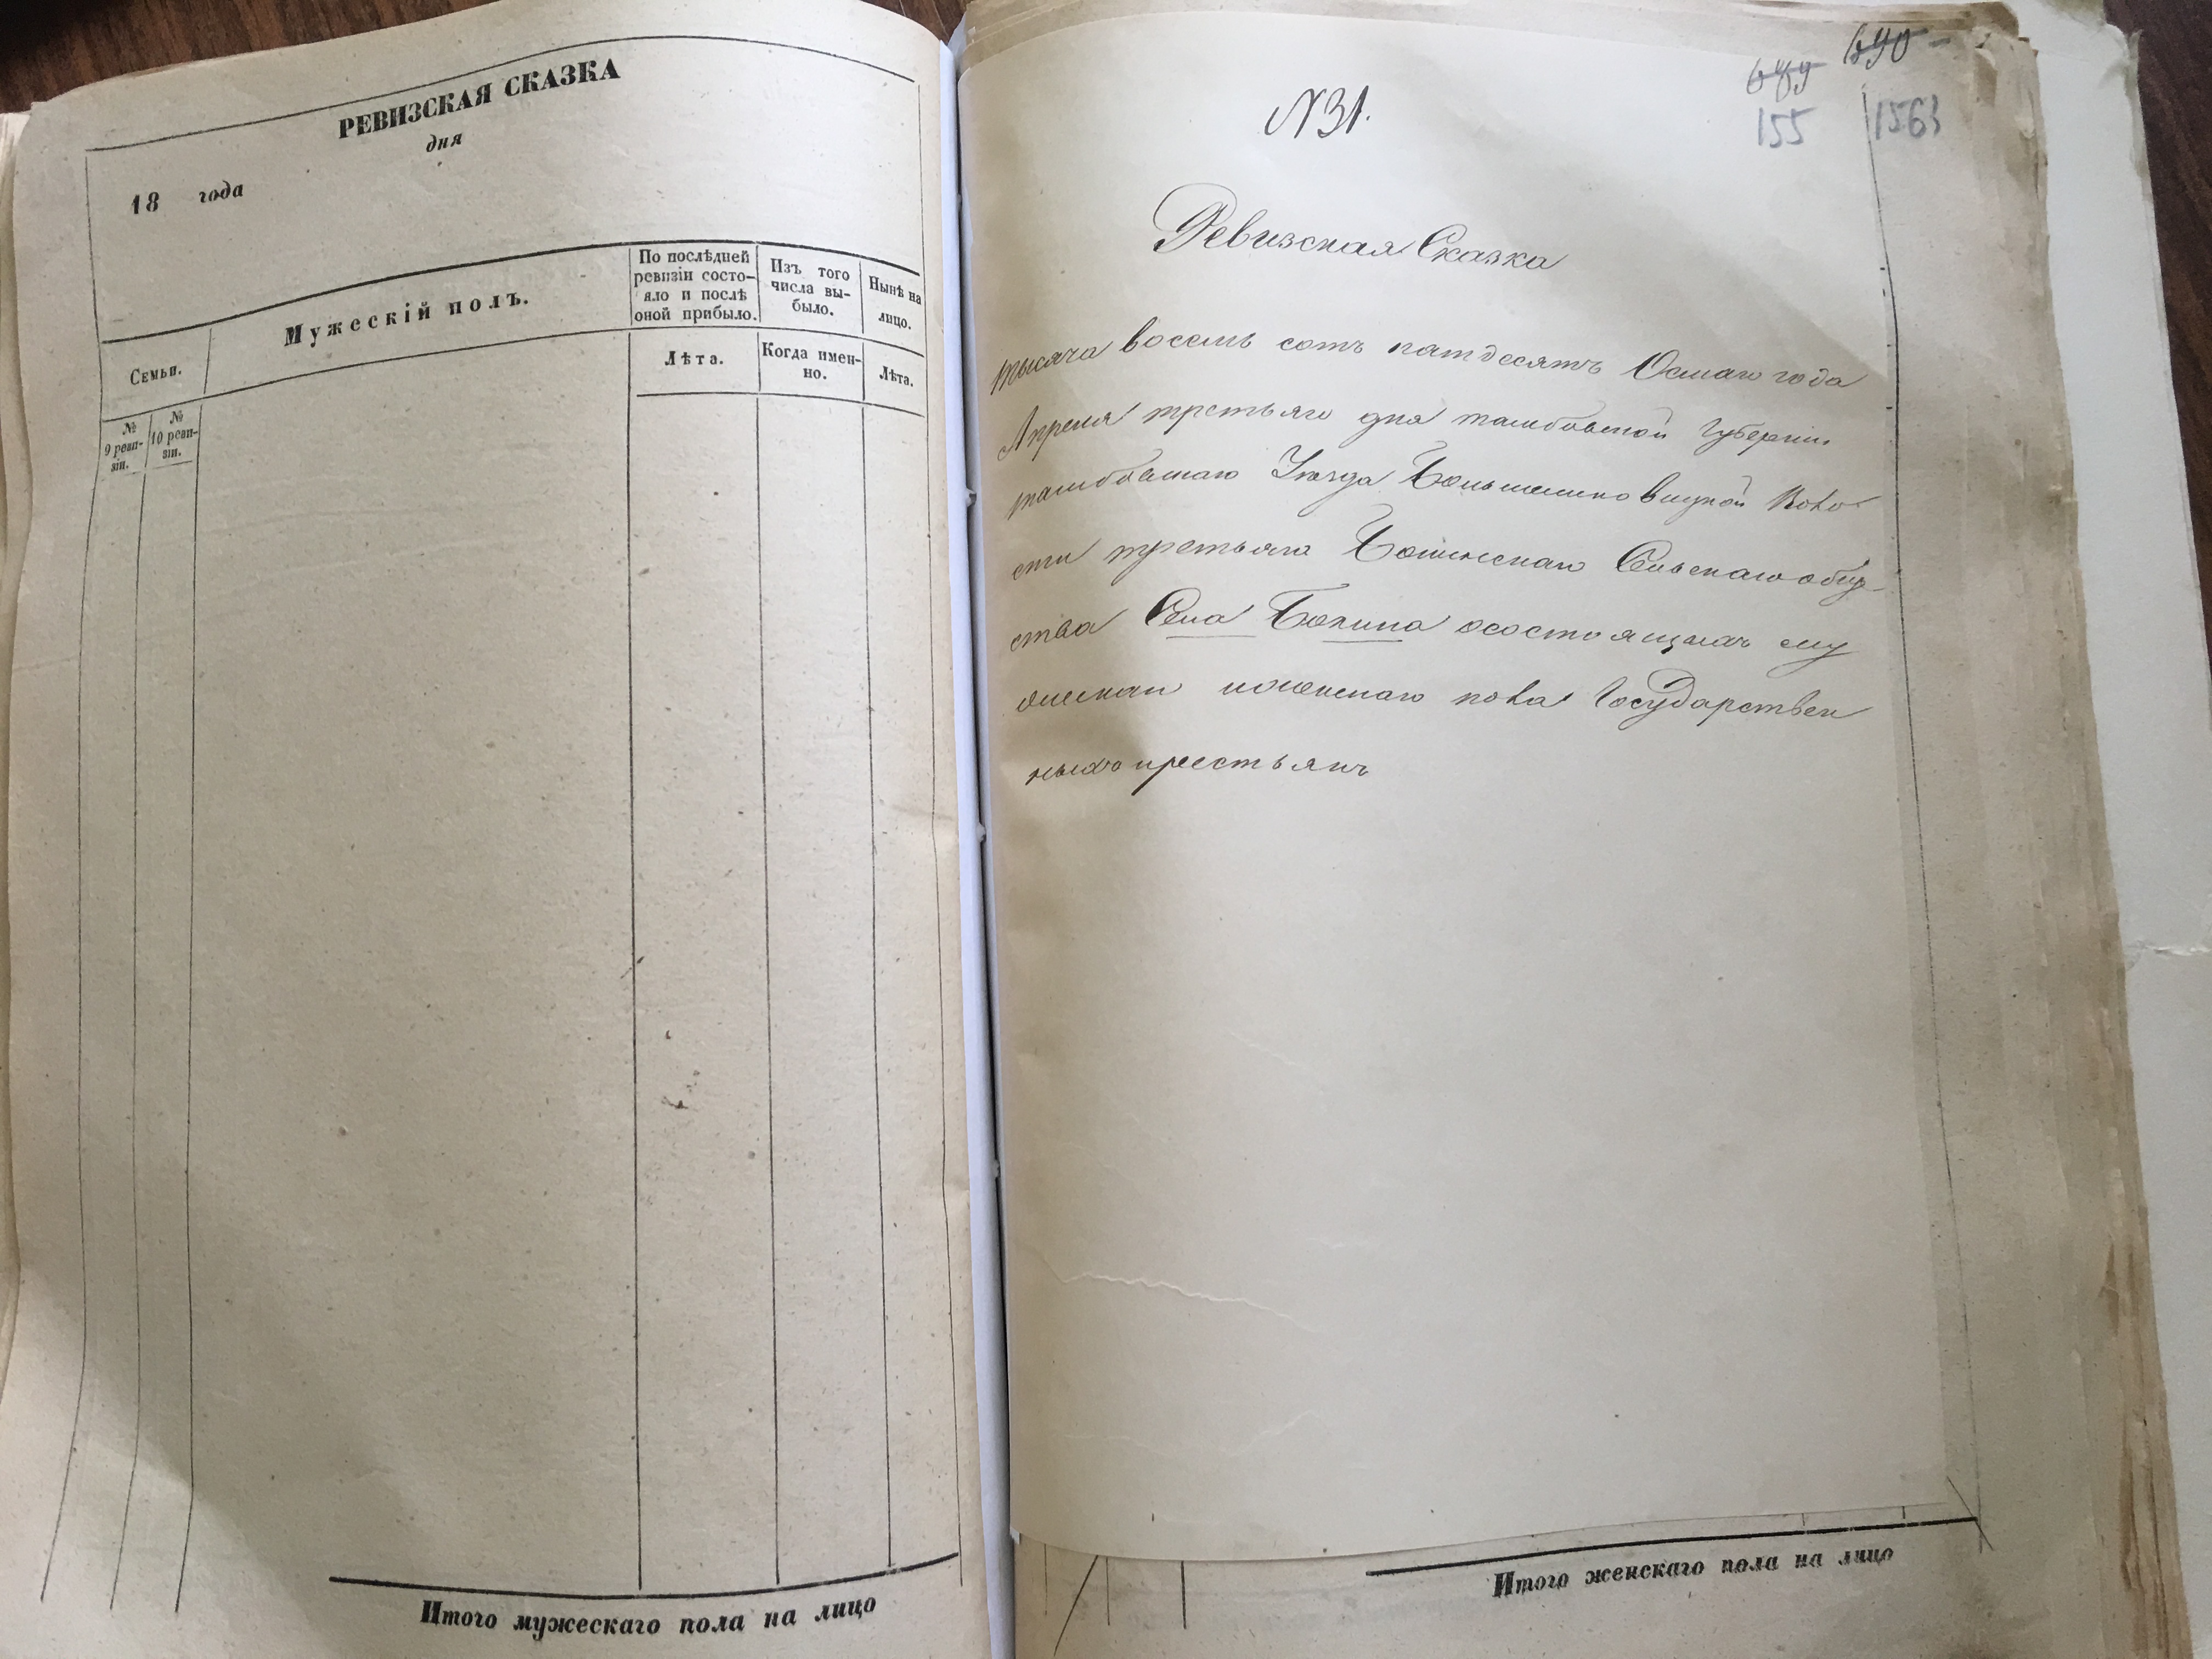 РЕВИЗСКАЯ СКАЗКА
дня
18 года
Семьи.
Мужескій полъ.
По послѣдней
ревизіи состо-
яло и послѣ
оной прибыло.
Изъ того
числа вы-
было.
Нынѣ на
лицо.
Лѣта.
Когда имен-
но.
Лѣта.
№
9 реви-
зіи.
№
10 реви-
зіи.
Итого мужескаго пола на лицо
689 690
155 1563
N 31.
Ревизская Сказка
тысяча восемь сотъ пятдесятъ Осмаго года
Апреля третьяго дня тамбовской Губерніи
тамбовскаго Уѣзда Воло-
сти третьяго Сельскаго общ-
ства Села осостоящихъ му
жескаго иженскаго пола Государствен
ныхъ крестьянъ
Итого женскаго пола на лицо